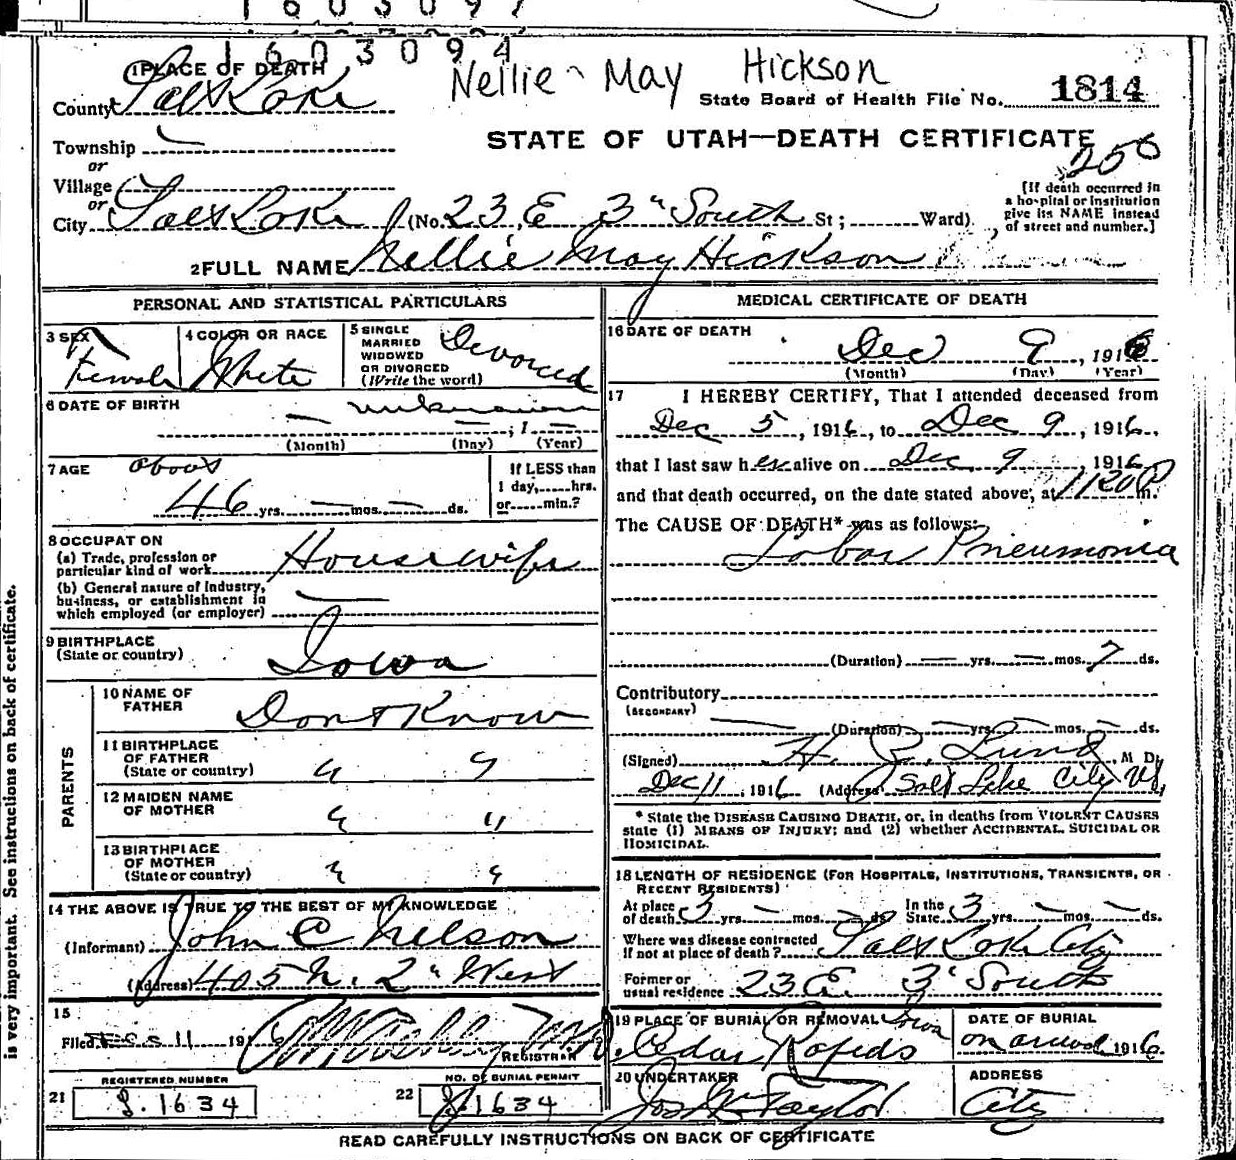 1603097
1603094
Nellie May Hickson
1 PLACE OF DEATH
County Salt Lake
State Board of Health File No. 1814
STATE OF UTAH—DEATH CERTIFICATE
256
Township
or
Village
or
City Salt Lake (No. 23 E 3" South St; Ward)
[If death occurred in a hospital or institution give its NAME instead of street and number.]
2 FULL NAME Nellie May Hickson
PERSONAL AND STATISTICAL PARTICULARS
3 SEX Female
4 COLOR OR RACE White
5 SINGLE MARRIED WIDOWED OR DIVORCED (Write the word) Devorced
6 DATE OF BIRTH — unknown
(Month) (Day) ; 1 — (Year)
7 AGE about
46 yrs. — mos. — ds.
If LESS than 1 day, hrs. or min.?
8 OCCUPATION
(a) Trade, profession or particular kind of work Housewife
(b) General nature of Industry, business, or establishment in which employed (or employer)
9 BIRTHPLACE (State or country) Iowa
PARENTS
10 NAME OF FATHER Dont Know
11 BIRTHPLACE OF FATHER (State or country) " "
12 MAIDEN NAME OF MOTHER " "
13 BIRTHPLACE OF MOTHER (State or country) " "
14 THE ABOVE IS TRUE TO THE BEST OF MY KNOWLEDGE
(Informant) John C Nelson
(Address) 405 N. 2" West
15
Filed Dec 11 1916
REGISTRAR
REGISTERED NUMBER
21 J.1634
NO. OF BURIAL PERMIT
22 J.1634
MEDICAL CERTIFICATE OF DEATH
16 DATE OF DEATH
Dec 9, 1916
(Month) (Day) (Year)
17 I HEREBY CERTIFY, That I attended deceased from
Dec 5, 1916, to Dec 9, 1916,
that I last saw her alive on Dec 9, 1916
and that death occurred, on the date stated above, at 1120 P m.
The CAUSE OF DEATH* was as follows:
Lobar Pneumonia
(Duration) — yrs. — mos. 7 ds.
Contributory
(SECONDARY)
(Duration) — yrs — mos. — ds.
(Signed) H. Z. Lund, M D,
Dec 11, 1916 (Address) Salt Lake City Ut,
* State the DISEASE CAUSING DEATH, or, in deaths from VIOLENT CAUSES
state (1) MEANS OF INJURY; and (2) whether ACCIDENTAL, SUICIDAL OR
HOMICIDAL.
18 LENGTH OF RESIDENCE (FOR HOSPITALS, INSTITUTIONS, TRANSIENTS, OR RECENT RESIDENTS)
At place of death 3 yrs — mos. ds. In the State 3 yrs — mos — ds.
Where was disease contracted if not at place of death? Salt Lake City
Former or usual residence 23 E. 3" South
19 PLACE OF BURIAL OR REMOVAL Iowa
Cedar Rapids
DATE OF BURIAL
on arrival 1916
20 UNDERTAKER
Jos Wm Taylor
ADDRESS
City
READ CAREFULLY INSTRUCTIONS ON BACK OF CERTIFICATE
is very important. See instructions on back of certificate.